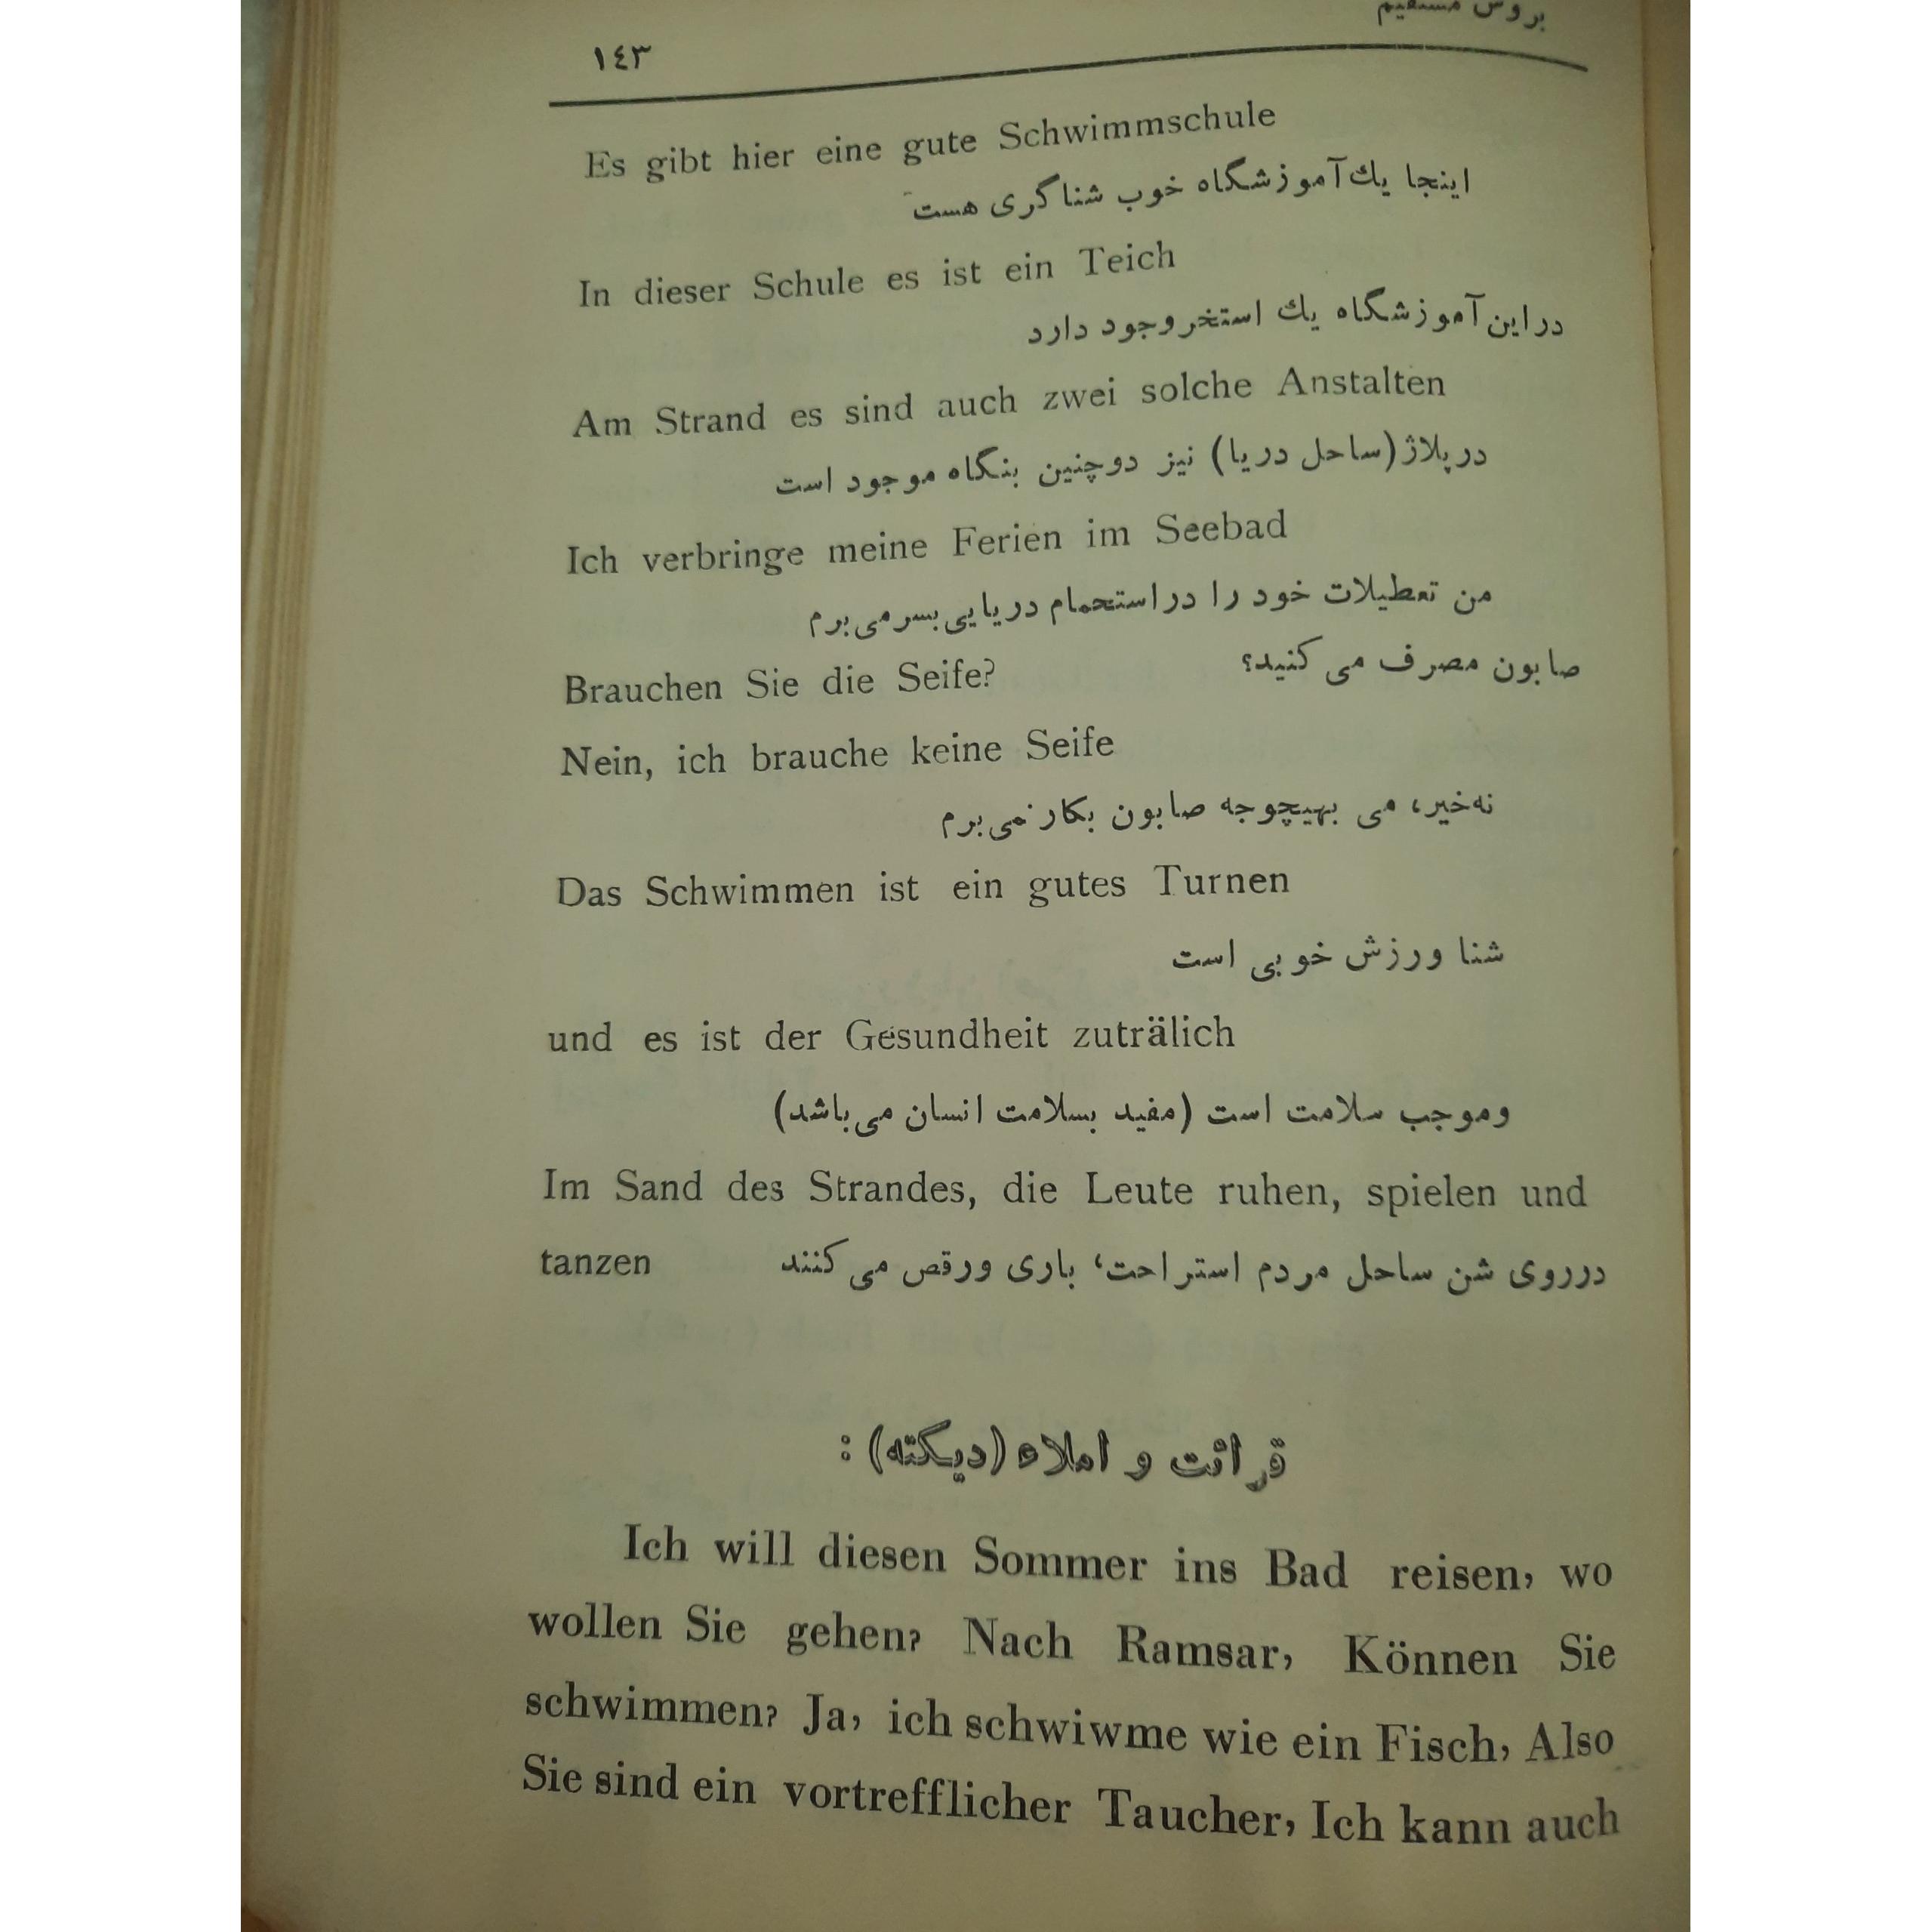 بروش مستقیم
١٤٣
Es gibt hier eine gute Schwimmschule
اینجا یك آموزشگاه خوب شناگری هست
In dieser Schule es ist ein Teich
دراین آموزشگاه یك استخر وجود دارد
Am Strand es sind auch zwei solche Anstalten
درپلاژ (ساحل دریا) نیز دوچنین بنگاه موجود است
Ich verbringe meine Ferien im Seebad
من تعطیلات خود را دراستحمام دریایی بسرمی‌برم
Brauchen Sie die Seife? صابون مصرف می کنید؟
Nein, ich brauche keine Seife
نه‌خیر، می بهیچوجه صابون بکارنمی‌برم
Das Schwimmen ist ein gutes Turnen
شنا ورزش خوبی است
und es ist der Gesundheit zuträlich
وموجب سلامت است (مفید بسلامت انسان می‌باشد)
Im Sand des Strandes, die Leute ruhen, spielen und
tanzen درروی شن ساحل مردم استراحت، باری ورقص می کنند
قرائت و املاء (دیکته) :
Ich will diesen Sommer ins Bad reisen, wo
wollen Sie gehen? Nach Ramsar, Können Sie
schwimmen? Ja, ich schwiwme wie ein Fisch, Also
Sie sind ein vortrefflicher Taucher, Ich kann auch